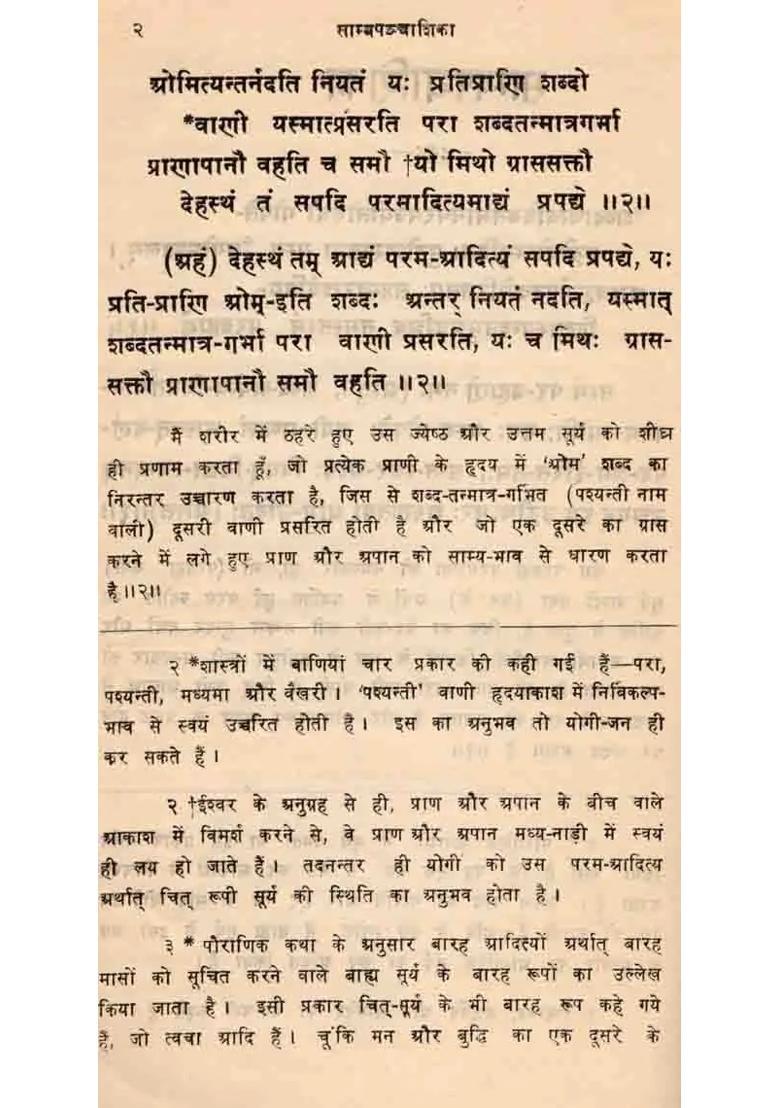 २ साम्बपञ्चाशिका
ओमित्यन्तर्नदति नियतं यः प्रतिप्राणि शब्दो
*वाणी यस्मात्प्रसरति परा शब्दतन्मात्रगर्भा
प्राणापानौ वहति च समौ †यो मिथो ग्राससक्तौ
देहस्थं तं सपदि परमादित्यमाद्यं प्रपद्ये ॥२॥
(अहं) देहस्थं तम् आद्यं परम-आदित्यं सपदि प्रपद्ये, यः
प्रति-प्राणि ओम्-इति शब्दः अन्तर् नियतं नदति, यस्मात्
शब्दतन्मात्र-गर्भा परा वाणी प्रसरति, यः च मिथः ग्रास-
सक्तौ प्राणापानौ समौ वहति ॥२॥
मैं शरीर में ठहरे हुए उस ज्येष्ठ और उत्तम सूर्य को शीघ्र
ही प्रणाम करता हूँ, जो प्रत्येक प्राणी के हृदय में 'ओम' शब्द का
निरन्तर उच्चारण करता है, जिस से शब्द-तन्मात्र-गर्भित (पश्यन्ती नाम
वाली) दूसरी वाणी प्रसरित होती है और जो एक दूसरे का ग्रास
करने में लगे हुए प्राण और अपान को साम्य-भाव से धारण करता
है ॥२॥
२ *शास्त्रों में बाणियां चार प्रकार की कही गई हैं—परा,
पश्यन्ती, मध्यमा और वैखरी। 'पश्यन्ती' वाणी हृदयाकाश में निर्विकल्प-
भाव से स्वयं उच्चरित होती है। इस का अनुभव तो योगी-जन ही
कर सकते हैं।
२ †ईश्वर के अनुग्रह से ही, प्राण और अपान के बीच वाले
आकाश में विमर्श करने से, वे प्राण और अपान मध्य-नाड़ी में स्वयं
ही लय हो जाते हैं। तदनन्तर ही योगी को उस परम-आदित्य
अर्थात् चित् रूपी सूर्य की स्थिति का अनुभव होता है।
३ * पौराणिक कथा के अनुसार बारह आदित्यों अर्थात् बारह
मासों को सूचित करने वाले बाह्य सूर्य के बारह रूपों का उल्लेख
किया जाता है। इसी प्रकार चित्-सूर्य के भी बारह रूप कहे गये
हैं, जो त्वचा आदि हैं। चूंकि मन और बुद्धि का एक दूसरे के